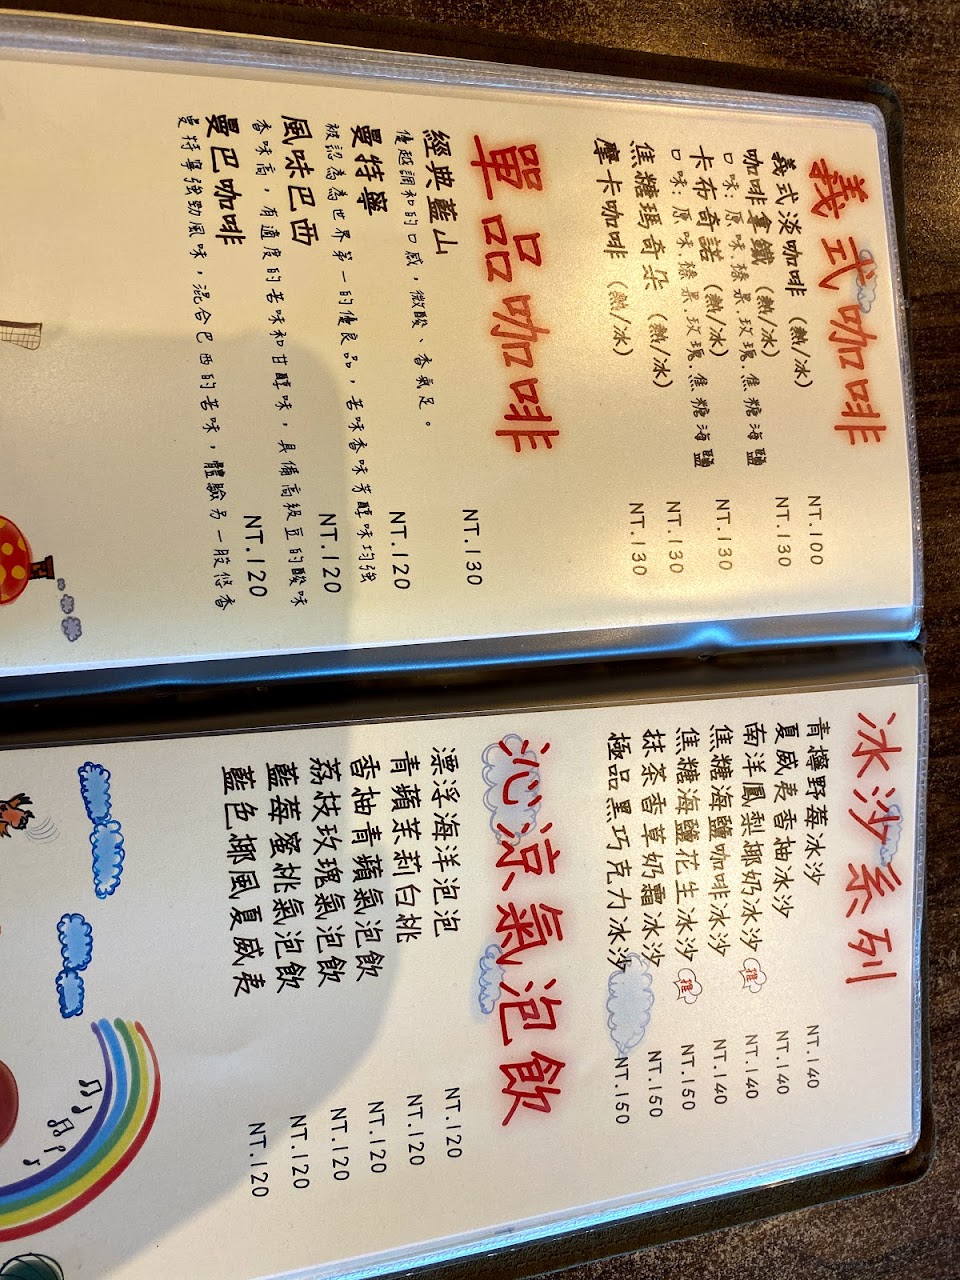 義式咖啡
義式淡咖啡 (熱/冰) NT.100
咖啡拿鐵 (熱/冰) NT.130
口味:原味.榛果.玫瑰.焦糖海鹽
卡布奇諾 (熱/冰) NT.130
口味:原味.榛果.玫瑰.焦糖海鹽
焦糖瑪奇朵 (熱/冰) NT.130
摩卡咖啡 (熱/冰) NT.130
單品咖啡
經典藍山 NT.130
優越調和的口感,微酸、香氣足。
曼特寧 NT.120
被認為為世界第一的優良品,苦味香味芳醇味均強
風味巴西 NT.120
香味高,有適度的苦味和甘醇味,具備高級豆的酸味
曼巴咖啡 NT.120
曼特寧強勁風味,混合巴西的苦味,體驗另一股悠香
冰沙系列
青檸野莓冰沙 NT.140
夏威夷香柚冰沙 NT.140
南洋鳳梨椰奶冰沙 推 NT.140
焦糖海鹽咖啡冰沙 NT.140
焦糖海鹽花生冰沙 推 NT.150
抹茶香草奶霜冰沙 NT.150
極品黑巧克力冰沙 NT.150
沁涼氣泡飲
漂浮海洋泡泡 NT.120
青蘋茉莉白桃 NT.120
香柚青蘋氣泡飲 NT.120
荔枝玫瑰氣泡飲 NT.120
藍莓蜜桃氣泡飲 NT.120
藍色椰風夏威夷 NT.120